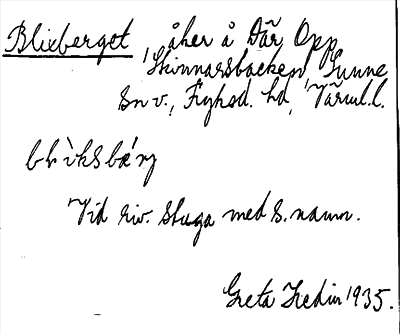 Blixberget åker å Där Opp
i Skinnarsbacken Sunne
sn v., Fryksd. hd, Värml.l.
blìksbærj
Vid riv. stuga med s. namn.
Greta Hedin 1935.